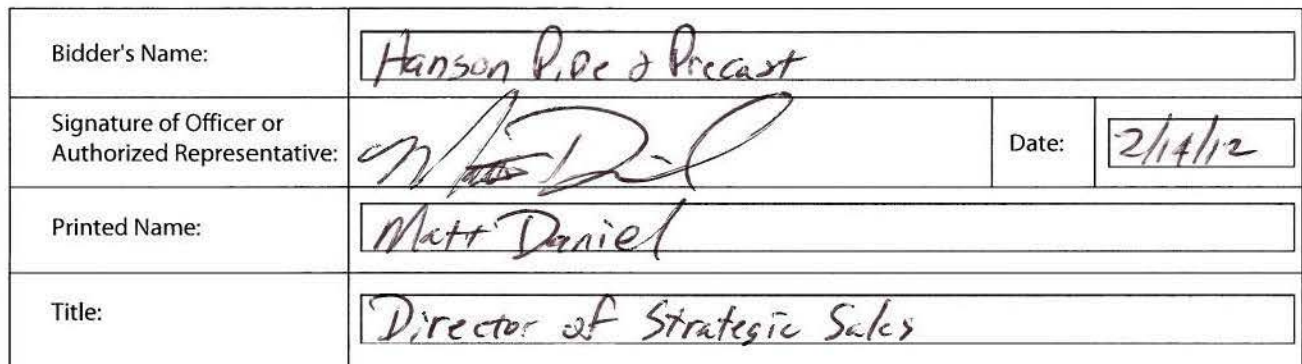 Bidder's Name: Hanson Pipe & Precast
Signature of Officer or
Authorized Representative: Matt Daniel Date: 2/14/12
Printed Name: Matt Daniel
Title: Director of Strategic Sales